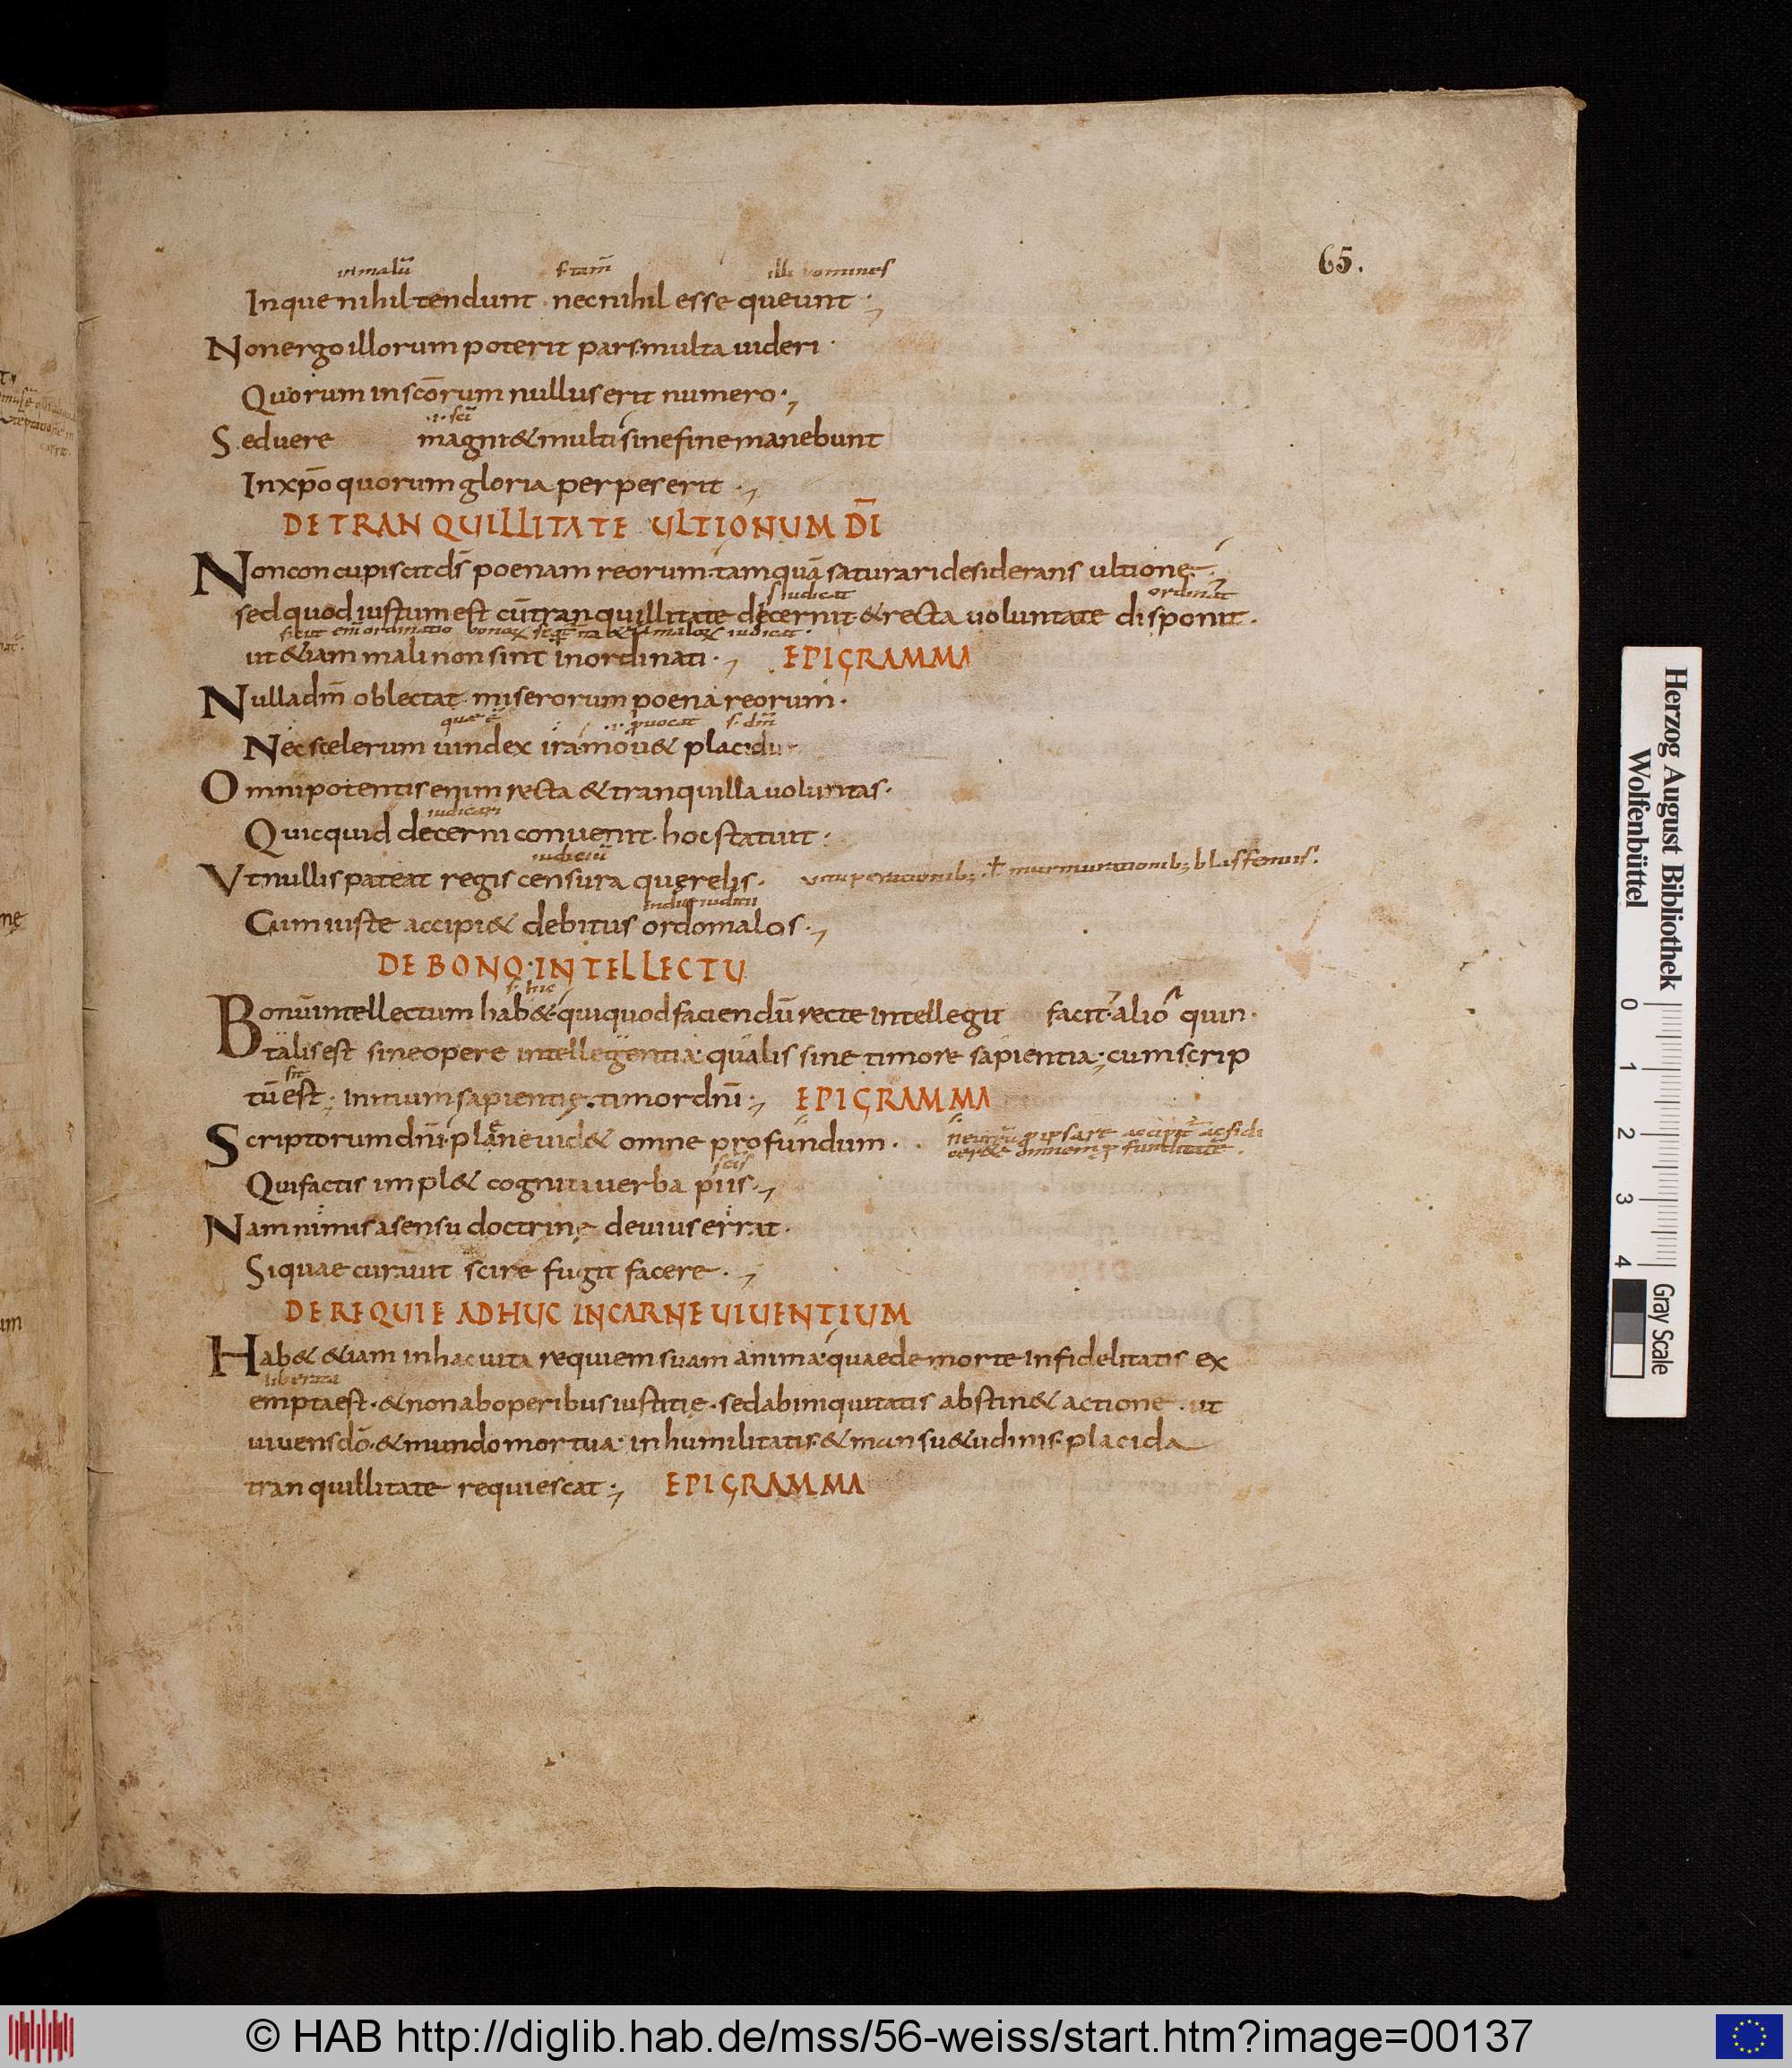 65.
in malū s. tam̄ illi homines
Inque nihil tendunt nec nihil esse queunt
Non ergo illorum poterit pars multa uideri
Quorum in scōrum nullus erit numero
.i. sci
Sed uere magni & multi sine fine manebunt
In xp̄o quorum gloria perpes erit
DE TRANQUILLITATE ULTIONUM DĪ
Non concupiscit dš poenam reorum tamquā saturari desiderans ultione
iudicat ordinat
sed quod iustum est cū tranquillitate decernit & recta uoluntate disponit.
ut &iam mali non sint inordinati EPIGRAMMA
Nulla dm̄ oblectat miserorum poena reorum
quae ē .i. puocat s. dm̄
Nec scelerum uindex iram ou& placidu
Omnipotentis enim recta & tranquilla uoluntas
iudicari
Quicquid decerni conuenit hoc statuit
iudiciū
Vt nullis pateat regis censura querelis. murmurationib; blasfemiis.
Cum iuste accipi& debitus ordo malos
DE BONO INTELLECTU
s. hic
Bonū intellectum hab& qui quod faciendū recte intellegit facit alioꝗuin
talis est sine opere intellegentia qualis sine timore sapientia cum scrip
sit
tū est Initium sapientię timor dnī EPIGRAMMA
Scriptorum dnī plane uid& omne profundum
scis
Qui factis impl& cognita uerba piis
Nam nimis a sensu doctrinę deuius errat
Si quae curauit scire fugit facere
DE REQUIE ADHUC IN CARNE UIUENTIUM
Hab& &iam in hac uita requiem suam anima quae de morte infidelitatis ex
liberata
empta est & non ab operibus iustitię sed ab iniquitatis abstin& actione ut
uiuens dō & mundo mortua in humilitatis & mansu&udinis placida
tranquillitate requiescat EPIGRAMMA
Herzog August Bibliothek
Wolfenbüttel
0 1 2 3 4 Gray Scale
© HAB http://diglib.hab.de/mss/56-weiss/start.htm?image=00137